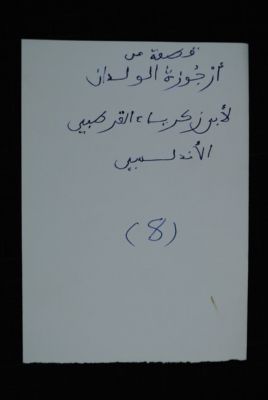 قطعة من
أرجوزة الولدان
لأبو زكرياء القرطبي
الأندلسي
(8)